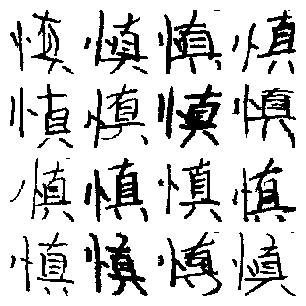 慎慎慎慎
慎慎慎慎
慎慎慎慎
慎慎慎慎